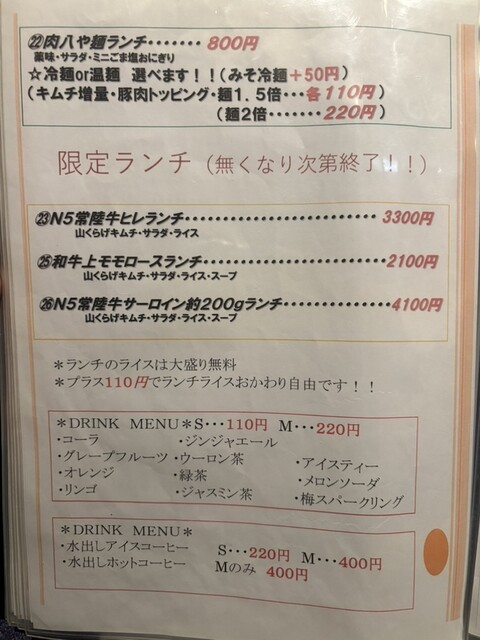 ㉒肉八や麺ランチ・・・・・・・800円
薬味・サラダ・ミニごま塩おにぎり
☆冷麺or温麺 選べます!!(みそ冷麺+50円)
(キムチ増量・豚肉トッピング・麺1.5倍・・・各110円)
(麺2倍・・・・・・・220円)
限定ランチ(無くなり次第終了!!)
㉓N5常陸牛ヒレランチ・・・・・・・・・・・・・・・・・・・・・・・・・ 3300円
山くらげキムチ・サラダ・ライス
㉕和牛上モモロースランチ・・・・・・・・・・・・・・・・・・・・・・2100円
山くらげキムチ・サラダ・ライス・スープ
㉖N5常陸牛サーロイン約200gランチ・・・・・・・・・・・・・・4100円
山くらげキムチ・サラダ・ライス・スープ
*ランチのライスは大盛り無料
*プラス110円でランチライスおかわり自由です!!
*DRINK MENU*S・・・110円 M・・・220円
・コーラ ・ジンジャエール
・グレープフルーツ ・ウーロン茶 ・アイスティー
・オレンジ ・緑茶 ・メロンソーダ
・リンゴ ・ジャスミン茶 ・梅スパークリング
*DRINK MENU*
・水出しアイスコーヒー S・・・220円 M・・・400円
・水出しホットコーヒー Mのみ 400円